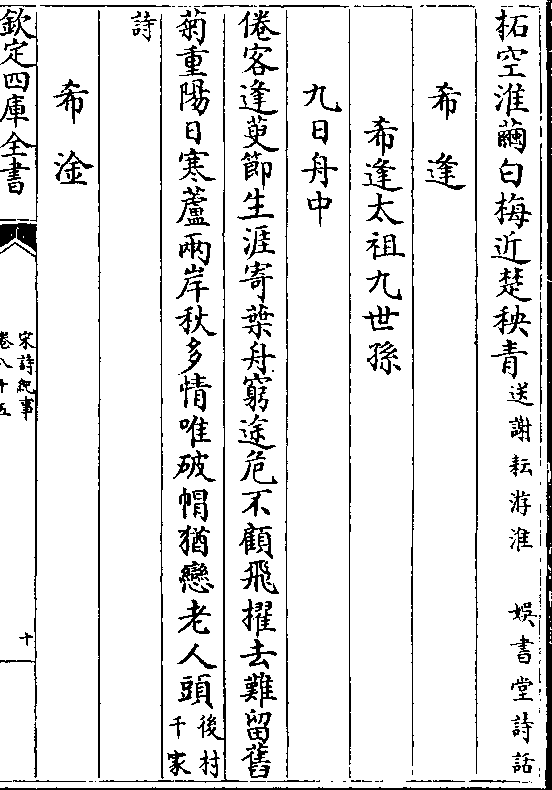 拓空淮繭白梅近楚秧青送謝耘游淮　娛書堂詩話
希逢
希逢太祖九世孫
九日舟中
倦客逢萸節生涯寄葉舟窮途危不顧飛擢去難留舊
菊重陽日寒蘆兩岸秋多情唯破帽猶戀老人頭後村千家
詩
希淦
欽定四庫全書
宋詩紀事
卷八十五
十